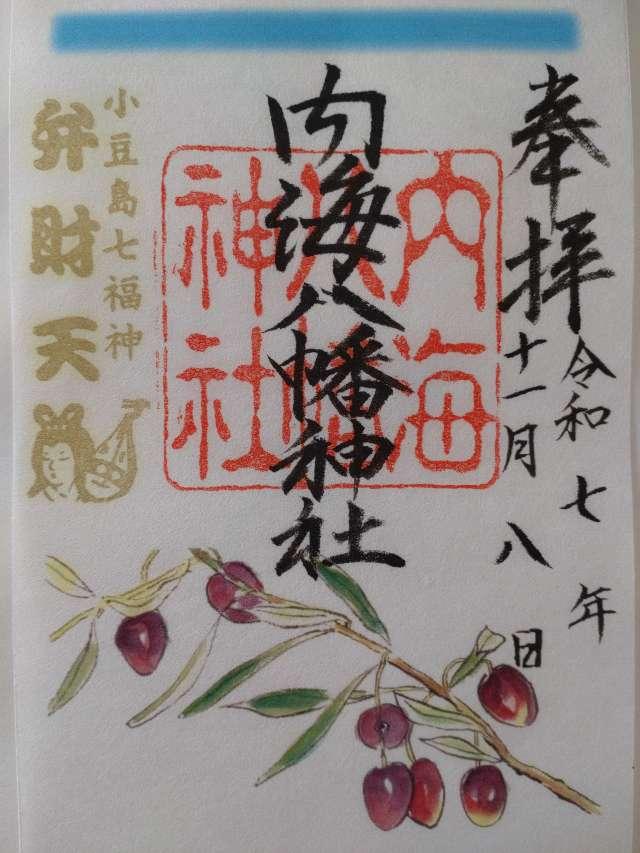 奉拝
令和七年
十一月八日
内海八幡神社
内海
八幡
神社
小豆島七福神
弁財天